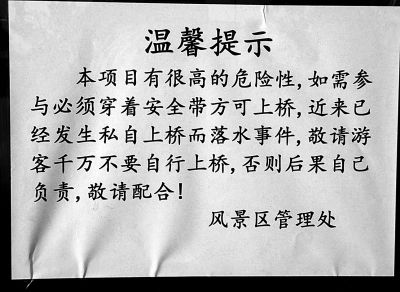 温馨提示
本项目有很高的危险性,如需参
与必须穿着安全带方可上桥,近来已
经发生私自上桥而落水事件,敬请游
客千万不要自行上桥,否则后果自己
负责,敬请配合!
风景区管理处